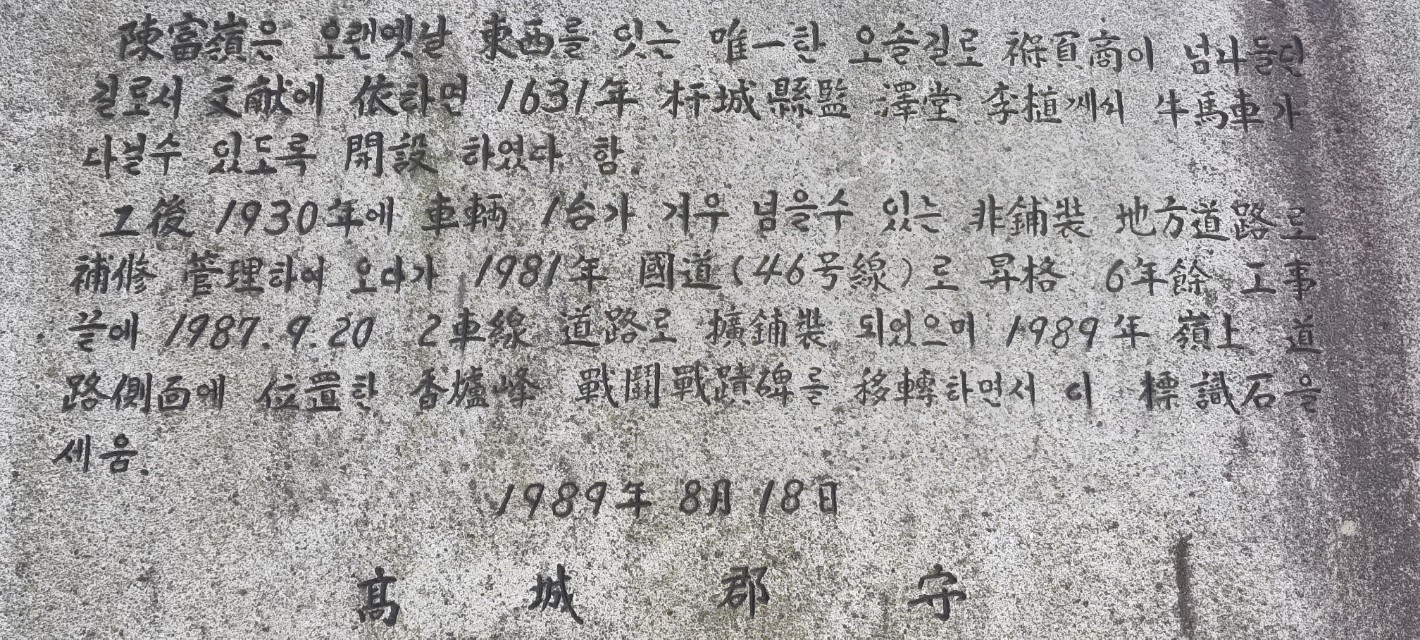 陳富嶺은 오랜옛날 東西를 잇는 唯一한 오솔길로 褓負商이 넘나들던
길로서 文献에 依하면 1631年 杆城縣監 澤堂 李植께서 牛馬車가
다닐수 있도록 開設 하였다 함.
그後 1930年에 車輌 1台가 겨우 넘을수 있는 非鋪裝 地方道路로
補修 管理하여 오다가 1981年 國道(46号線)로 昇格 6年餘 工事
끝에 1987.9.20 2車線 道路로 擴鋪裝 되었으며 1989年 嶺上 道
路側面에 位置한 香爐峰 戰鬪戰蹟碑를 移轉하면서 이 標識石을
세움.
1989年 8月 18日
高 城 郡 守